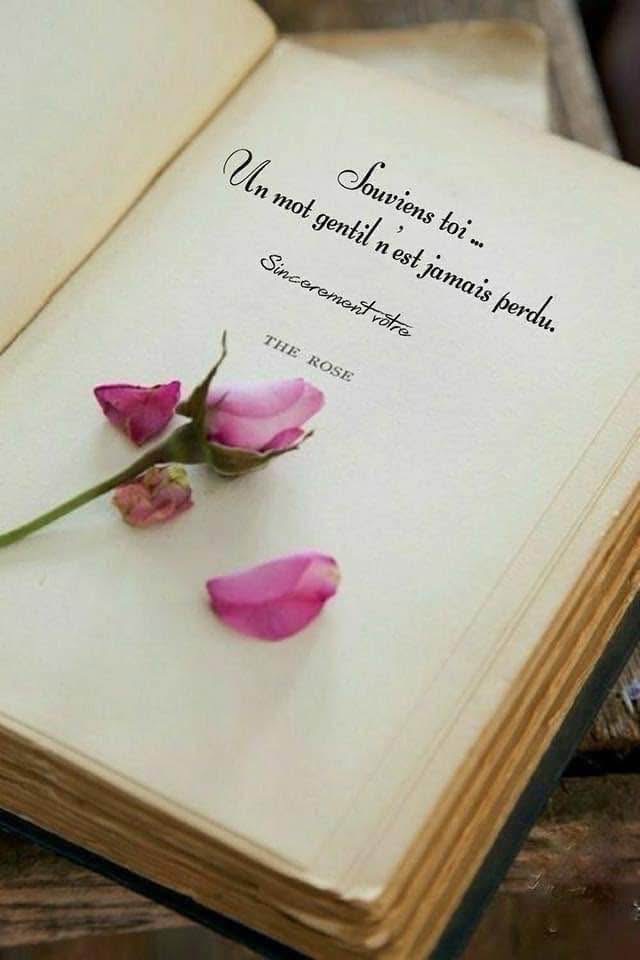 Souviens toi ...
Un mot gentil n'est jamais perdu.
Sincerement votre
THE ROSE